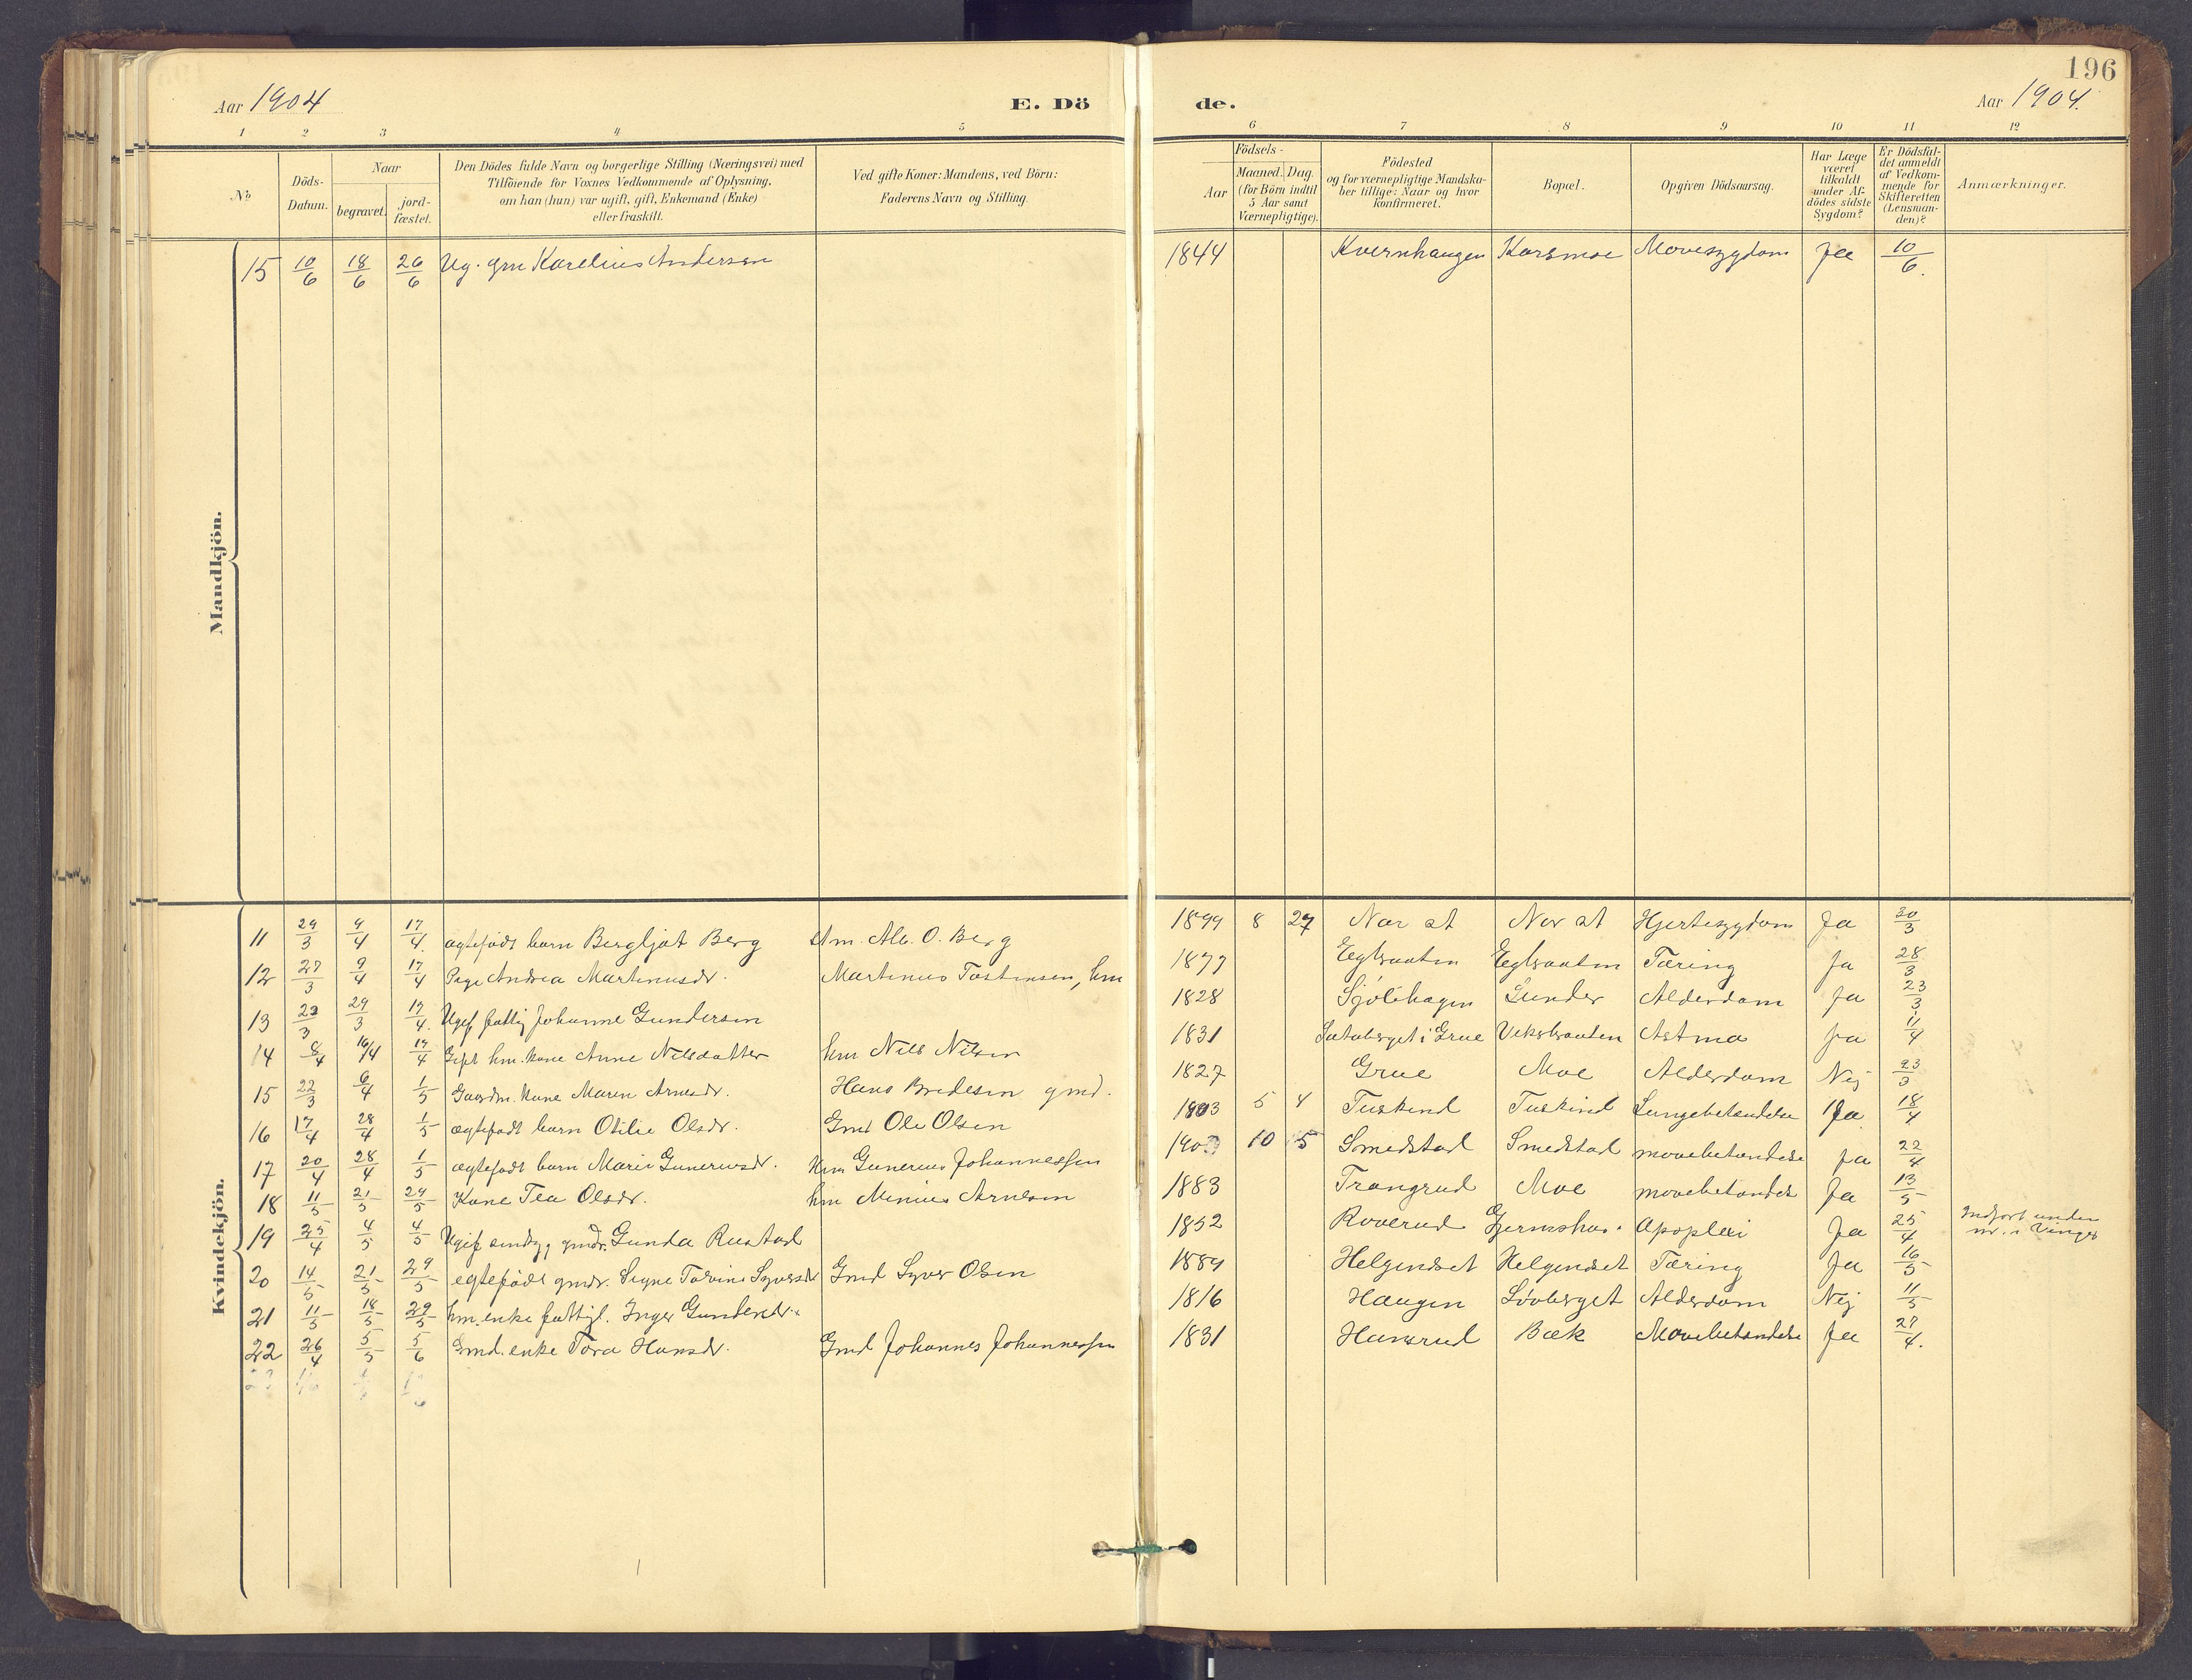 196
Aar 1904 E. Dö de. Aar 1904.
1 2 3 4 5 6 7 8 9 10 11 12
No
Döds-Datum.
Naar
begravet.
jord-fæstet.
Den Dödes fulde Navn og borgerlige Stilling (Næringsvei) med
Tilföiende for Voxnes Vedkommende af Oplysning,
om han (hun) var ugift, gift, Enkemand (Enke)
eller fraskilt.
Ved gifte Koner: Mandens, ved Börn:
Faderens Navn og Stilling.
Födsels-
Aar
Maaned. Dag.
(for Börn indtil
5 Aar samt
Værnepligtige).
Födested
og for værnepligtige Mandska-
ber tillige: Naar og hvor
konfirmeret.
Bopæl.
Opgiven Dödsaarsag.
Har Læge
været
tilkaldt
under Af-
dödes sidste
Sygdom?
Er Dödsfal-
det anmeldt
af Vedkom-
mende for
Skifteretten
(Lensman-
den)?
Anmærkninger.
Mandkjön.
15 10/6 18/6 26/6 Ug. gm Karelius Andersen 1844 Kvernhaugen Korsmoe Mavesygdom Ja 10/6.
Kvindekjön.
11 29/3 9/4 17/4. ægtefödt barn Bergljot Berg Alb. O. Berg 1899 8 27 Nor st Nor st Hjertesygdom Ja 30/3
12 27/3 9/4 17/4 Pige Andrea Martinusdr. Martinus Tostensen, hm 1877 Tæring Ja 28/3
13 22/3 29/3 17/4. Ugif. fattig Johanne Gundersen 1828 Sjölihagen Gunder Alderdom Ja 23/3
14 8/4 16/4 17/4 Gift hm. kone Anne Nilsdatter hm Nils Nilsen 1831 i Grue Astma Ja 11/4
15 22/3 6/4 1/5 Gaardm. kone Maren Arnesdr. Hans Bredesen gmd. 1827 Grue Moe Alderdom Nej 23/3
16 17/4 28/4 1/5 ægtefödt barn Otilie Olsdr. Gmd Ole Olsen 1903 5 4 Tuskind Tuskind Lungebetændelse Ja 18/4
17 20/4 28/4 1/5 ægtefödt barn Marie Guneriusdr. Hm Gunerius Johannessen 1903 10 5 Smedstad Smedstad mavebetændelse Ja 22/4
18 11/5 21/5 29/5 Kone Tea Olsdr. hm Menius Arnesen 1883 Trangrud Moe mavebetændelse Ja 13/5
19 25/4 4/5 4/5 Ugift sindsyg gmdr. Gunda Rustad 1852 Roverud Gjermshus. Apoplexi Ja 25/4 Indfört under nr. i Vinger
20 14/5 21/5 29/5 egtefödt gmdr. Signe Torvine Syversdr Gmd Syver Olsen 1889 Helgenset Helgenset Tæring Ja 16/5
21 11/5 18/5 29/5 hm. enke fattigl. Inger Gundersdr. 1816 Haugen Lövberget Alderdom Nej 11/5
22 26/4 5/5 5/6 Gmd. enke Tora Hansdr. Gmd Johannes Johannessen 1831 Hansrud Bæk Mavebetændelse Ja 27/4.
23